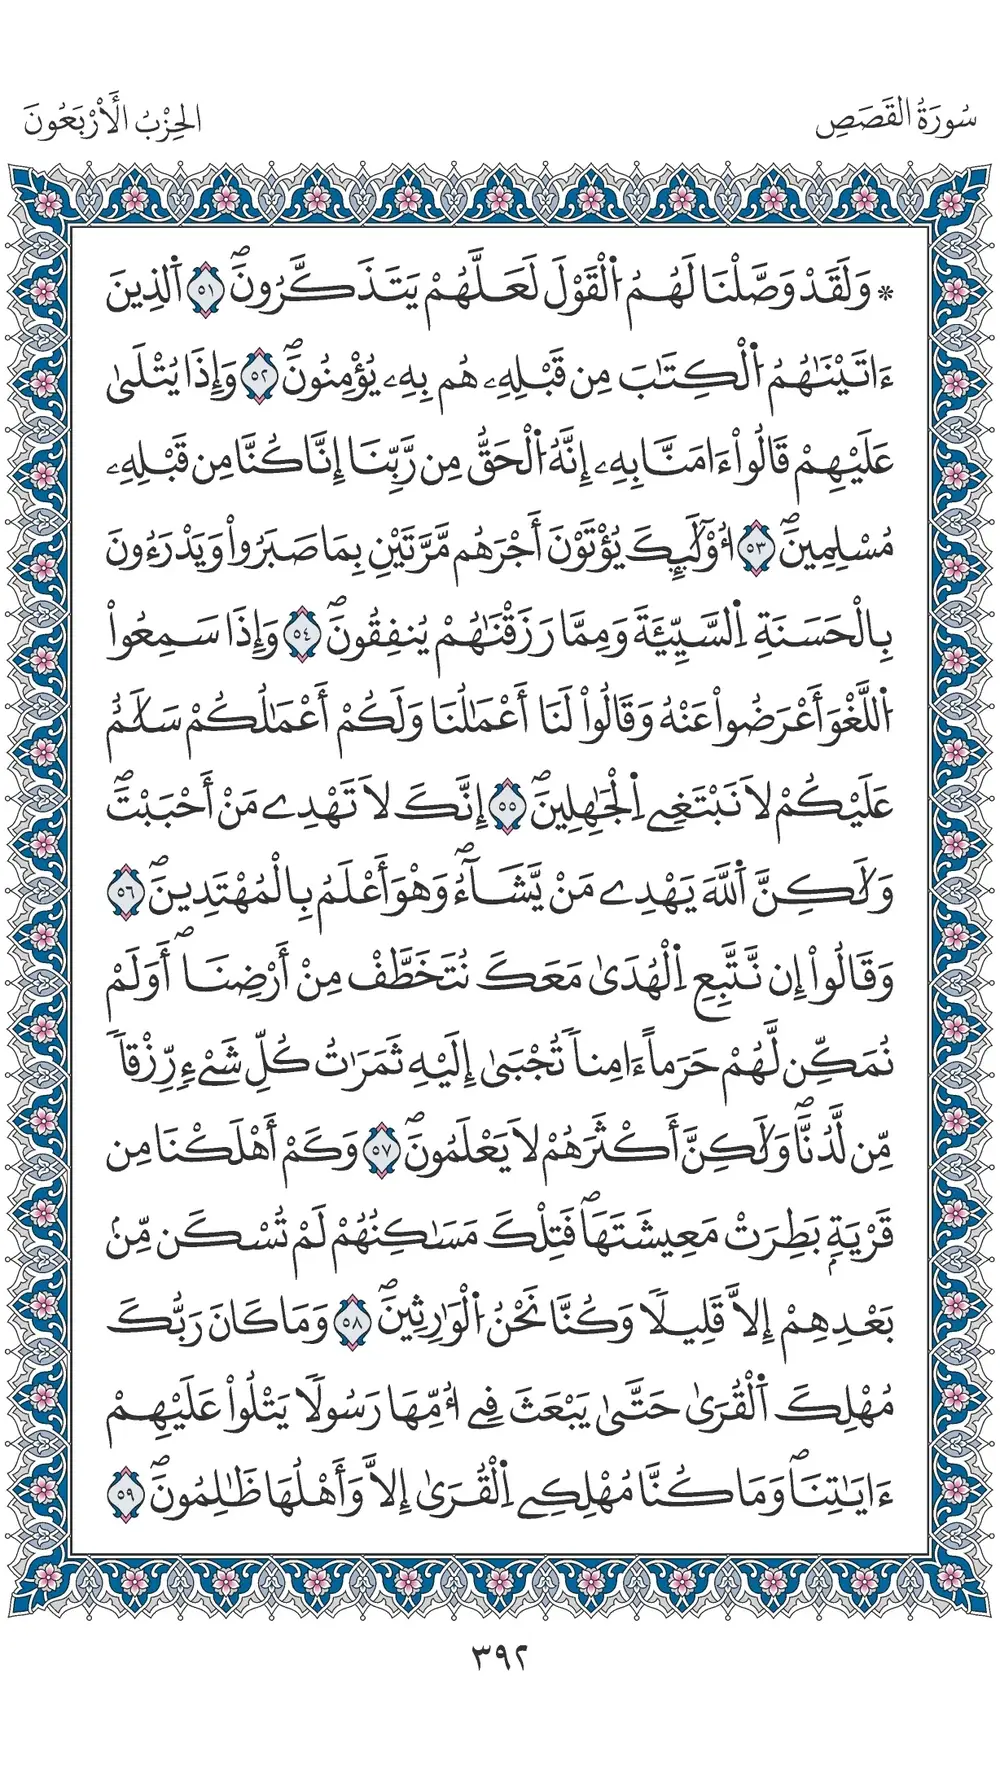 سُورَةُ القَصَصِ
الحِزْبُ الْأَرْبَعُونَ
* وَلَقَدْ وَصَّلْنَا لَهُمُ اُ۬لْقَوْلَ لَعَلَّهُمْ يَتَذَكَّرُونَۖ ٥١ اَ۬لذِينَ
ءَاتَيْنَٰهُمُ اُ۬لْكِتَٰبَ مِن قَبْلِهِۦ هُم بِهِۦ يُؤْمِنُونَۖ ٥٢ وَإِذَا يُتْلَىٰ
عَلَيْهِمْ قَالُواْ ءَامَنَّا بِهِۦ إِنَّهُ اُ۬لْحَقُّ مِن رَّبِّنَا إِنَّا كُنَّا مِن قَبْلِهِۦ
مُسْلِمِينَۖ ٥٣ أُوْلَٰٓئِكَ يُؤْتَوْنَ أَجْرَهُم مَّرَّتَيْنِ بِمَا صَبَرُواْ وَيَدْرَءُونَ
بِالْحَسَنَةِ اِ۬لسَّيِّئَةَ وَمِمَّا رَزَقْنَٰهُمْ يُنفِقُونَۖ ٥٤ وَإِذَا سَمِعُواْ
اُ۬للَّغْوَ أَعْرَضُواْ عَنْهُ وَقَالُواْ لَنَا أَعْمَٰلُنَا وَلَكُمْ أَعْمَٰلُكُمْ سَلَٰمٌ
عَلَيْكُمْ لَا نَبْتَغِے اِ۬لْجَٰهِلِينَۖ ٥٥ إِنَّكَ لَا تَهْدِے مَنْ أَحْبَبْتَۖ
وَلَٰكِنَّ اَ۬للَّهَ يَهْدِے مَنْ يَّشَآءُۖ وَهْوَ أَعْلَمُ بِالْمُهْتَدِينَۖ ٥٦
وَقَالُواْ إِن نَّتَّبِعِ اِ۬لْهُدَىٰ مَعَكَ نُتَخَطَّفْ مِنْ أَرْضِنَاۖ أَوَلَمْ
نُمَكِّن لَّهُمْ حَرَماً ءَامِناً تُجْبَىٰ إِلَيْهِ ثَمَرَٰتُ كُلِّ شَےْءٍ رِّزْقاً
مِّن لَّدُنَّاۖ وَلَٰكِنَّ أَكْثَرَهُمْ لَا يَعْلَمُونَۖ ٥٧ وَكَمْ أَهْلَكْنَا مِن
قَرْيَةٍ بَطِرَتْ مَعِيشَتَهَاۖ فَتِلْكَ مَسَٰكِنُهُمْ لَمْ تُسْكَن مِّنۢ
بَعْدِهِمْ إِلَّا قَلِيلًا وَكُنَّا نَحْنُ اُ۬لْوَٰرِثِينَۖ ٥٨ وَمَا كَانَ رَبُّكَ
مُهْلِكَ اَ۬لْقُرَىٰ حَتَّىٰ يَبْعَثَ فِے أُمِّهَا رَسُولًا يَتْلُواْ عَلَيْهِمْ
ءَايَٰتِنَاۖ وَمَا كُنَّا مُهْلِكِے اِ۬لْقُرَىٰ إِلَّا وَأَهْلُهَا ظَٰلِمُونَۖ ٥٩
٣٩٢